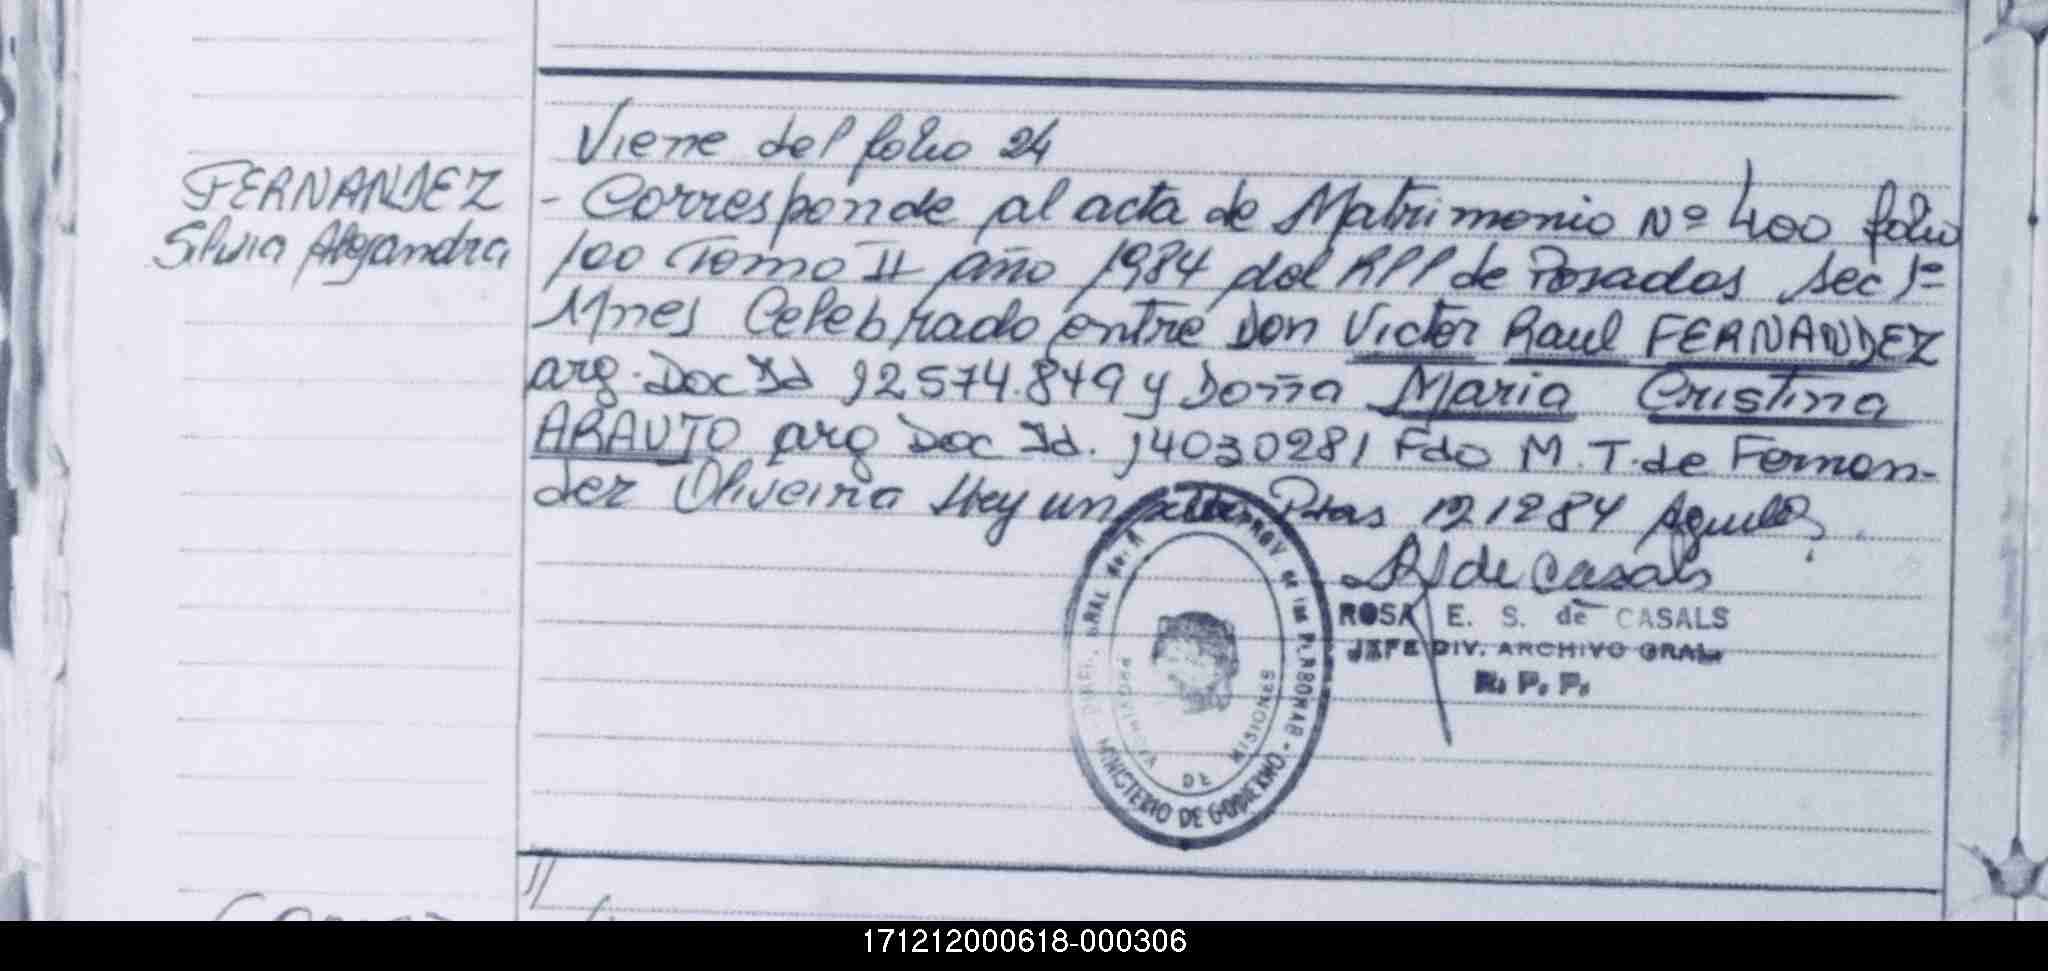 Viene del folio 24
FERNANDEZ
Silvia Alejandra
- Corresponde al acta de Matrimonio Nº 400 folio
100 Tomo II año 1984 del RPP de Posadas Sec 1º
Mnes Celebrado entre Don Victor Raul FERNANDEZ
arg. Doc Id 12574.849 y Doña Maria Cristina
ARAUJO arg Doc Id. 14030281 Fdo M. T. de Fernan-
dez Oliveira Hay un sello Pdas 12 12 84
de Casals
ROSA E. S. de CASALS
JEFE DIV. ARCHIVO GRAL.
R. P. P.
PROVINCIA DE MISIONES
MINISTERIO DE GOBIERNO
171212000618-000306